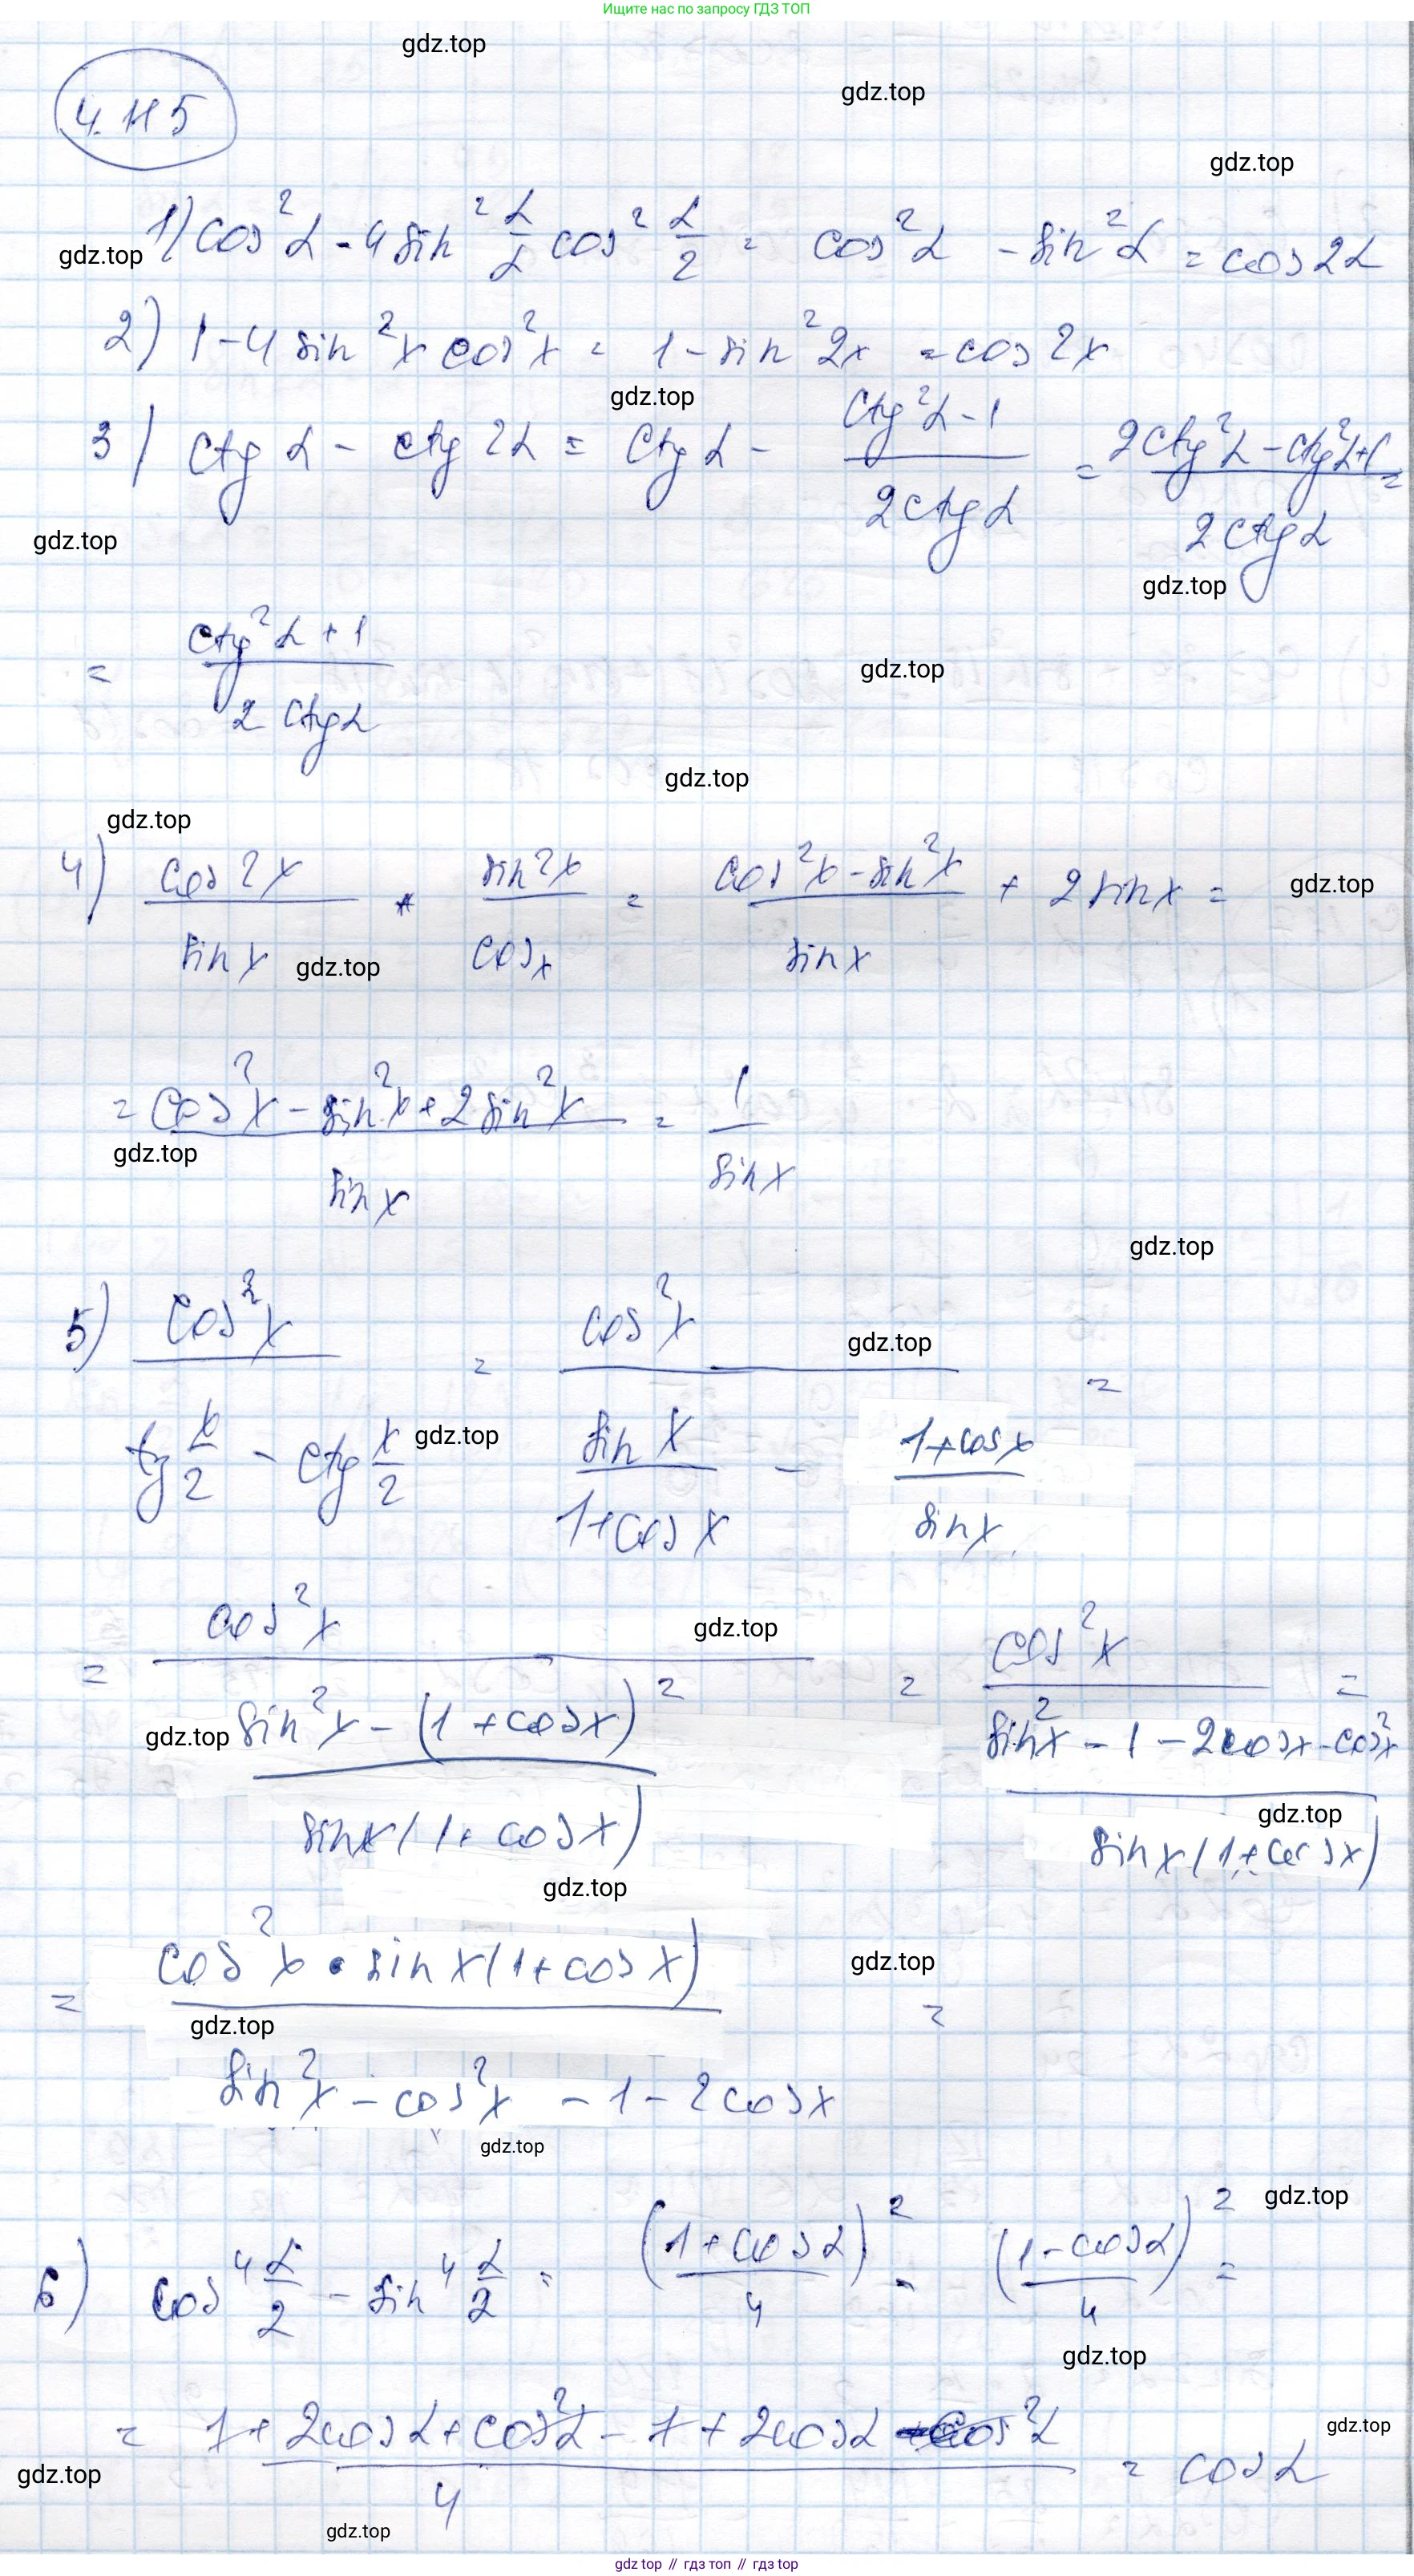 Ищите нас по запросу ГДЗ ТОП
gdz.top
gdz.top
4.115
gdz.top
1) cos²α - 4 sin² α/2 cos² α/2 = cos²α - sin²α = cos 2α
gdz.top
2) 1 - 4 sin²x cos²x = 1 - sin²2x = cos 2x
gdz.top
3) ctg α - ctg 2α = ctg α - (ctg²α - 1)/(2ctg α) = (2ctg²α - ctg²α + 1)/(2ctg α) =
gdz.top
gdz.top
= (ctg²α + 1)/(2 ctg α)
gdz.top
gdz.top
gdz.top
4) cos 2x/sin x + sin 2x/cos x = (cos²x - sin²x)/sin x + 2 sin x =
gdz.top
gdz.top
= (cos²x - sin²x + 2 sin²x)/sin x = 1/sin x
gdz.top
gdz.top
5) cos²x/(tg x/2 - ctg x/2) = cos²x/(sin x/(1+cos x) - (1+cos x)/sin x) =
gdz.top
gdz.top
= cos²x/((sin²x - (1 + cos x)²)/(sin x(1 + cos x))) = cos²x/((sin²x - 1 - 2cos x - cos²x)/(sin x(1 + cos x))) =
gdz.top
gdz.top
gdz.top
gdz.top
= (cos²x · sin x(1 + cos x))/(sin²x - cos²x - 1 - 2cos x) =
gdz.top
gdz.top
gdz.top
gdz.top
6) cos⁴ α/2 - sin⁴ α/2 = (1 + cos α)²/4 - (1 - cos α)²/4 =
gdz.top
= (1 + 2cos α + cos²α - 1 + 2cos α - cos²α)/4 = cos α
gdz.top
gdz.top
gdz.top
gdz.top // гдз топ // гдз top